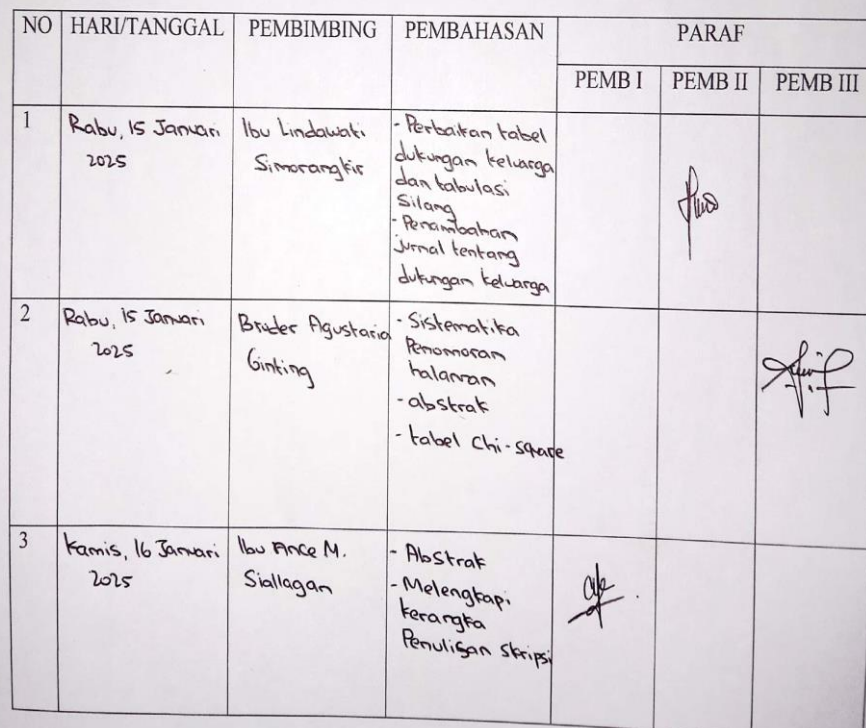 NO HARI/TANGGAL PEMBIMBING PEMBAHASAN PARAF
PEMB I PEMB II PEMB III
1 Rabu, 15 Januari 2025 Ibu Lindawati Simorangkir
- Perbaikan tabel
dukungan keluarga
dan tabulasi
Silang
- Penambahan
jurnal tentang
dukungan keluarga
2 Rabu, 15 Januari 2025 Bruder Agustaria Ginting
- Sistematika
Penomoran
halaman
- abstrak
- tabel Chi-square
3 Kamis, 16 Januari 2025 Ibu Ance M. Siallagan
- Abstrak
- Melengkapi
kerangka
Penulisan Skripsi